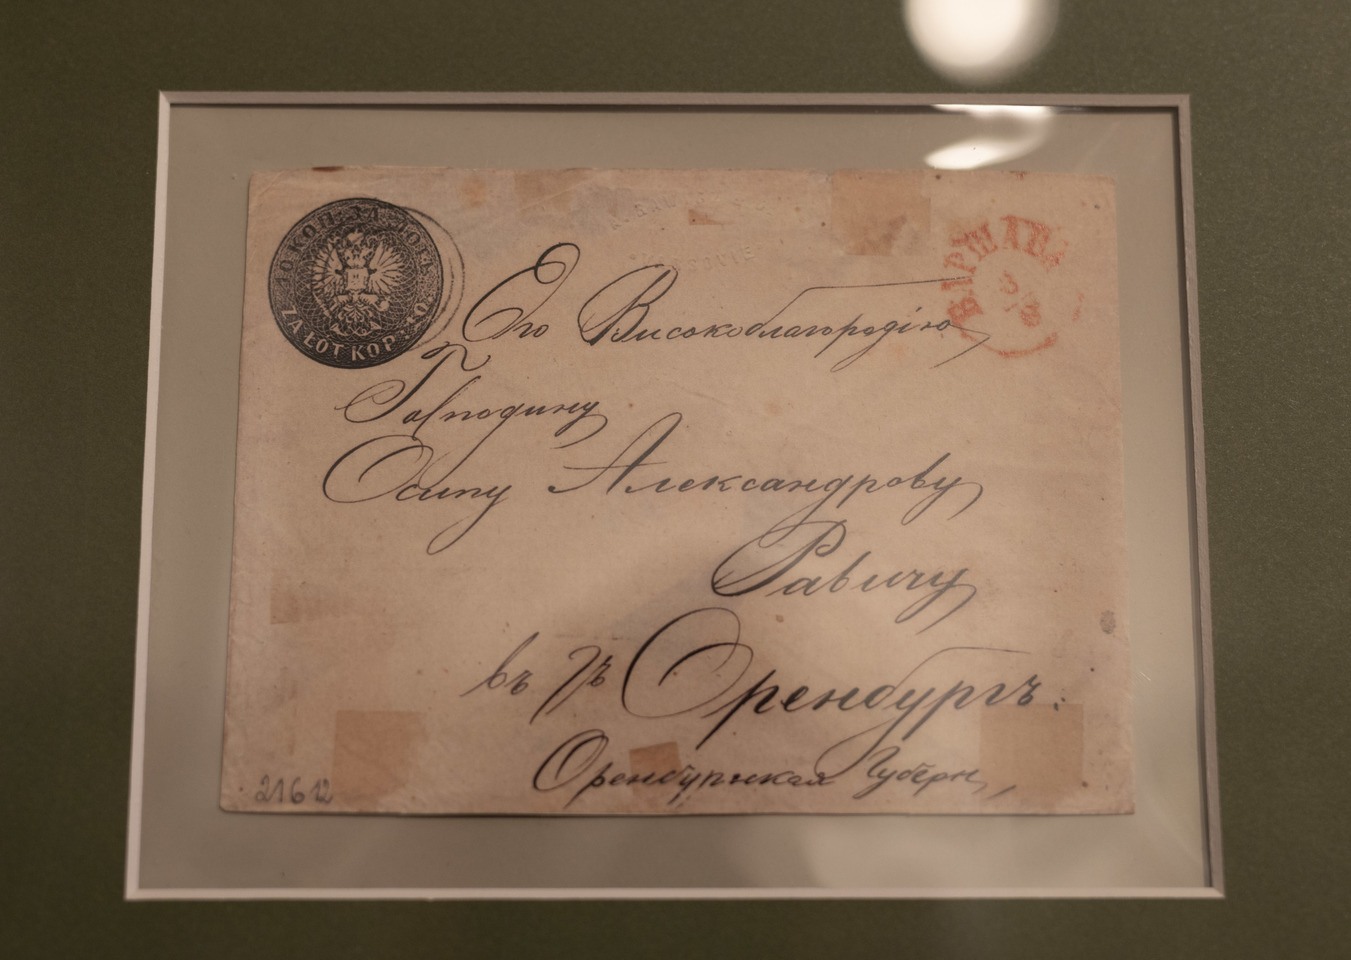 10 КОП. ЗА ЛОТЪ
ZA ŁÓT KOP. 10.
VARSOVIE
ВАРШАВА
Его Высокоблагородію
Господину
Осипу Александрову
Равичу
въ гъ Оренбургъ.
Оренбургская Губерн
21612